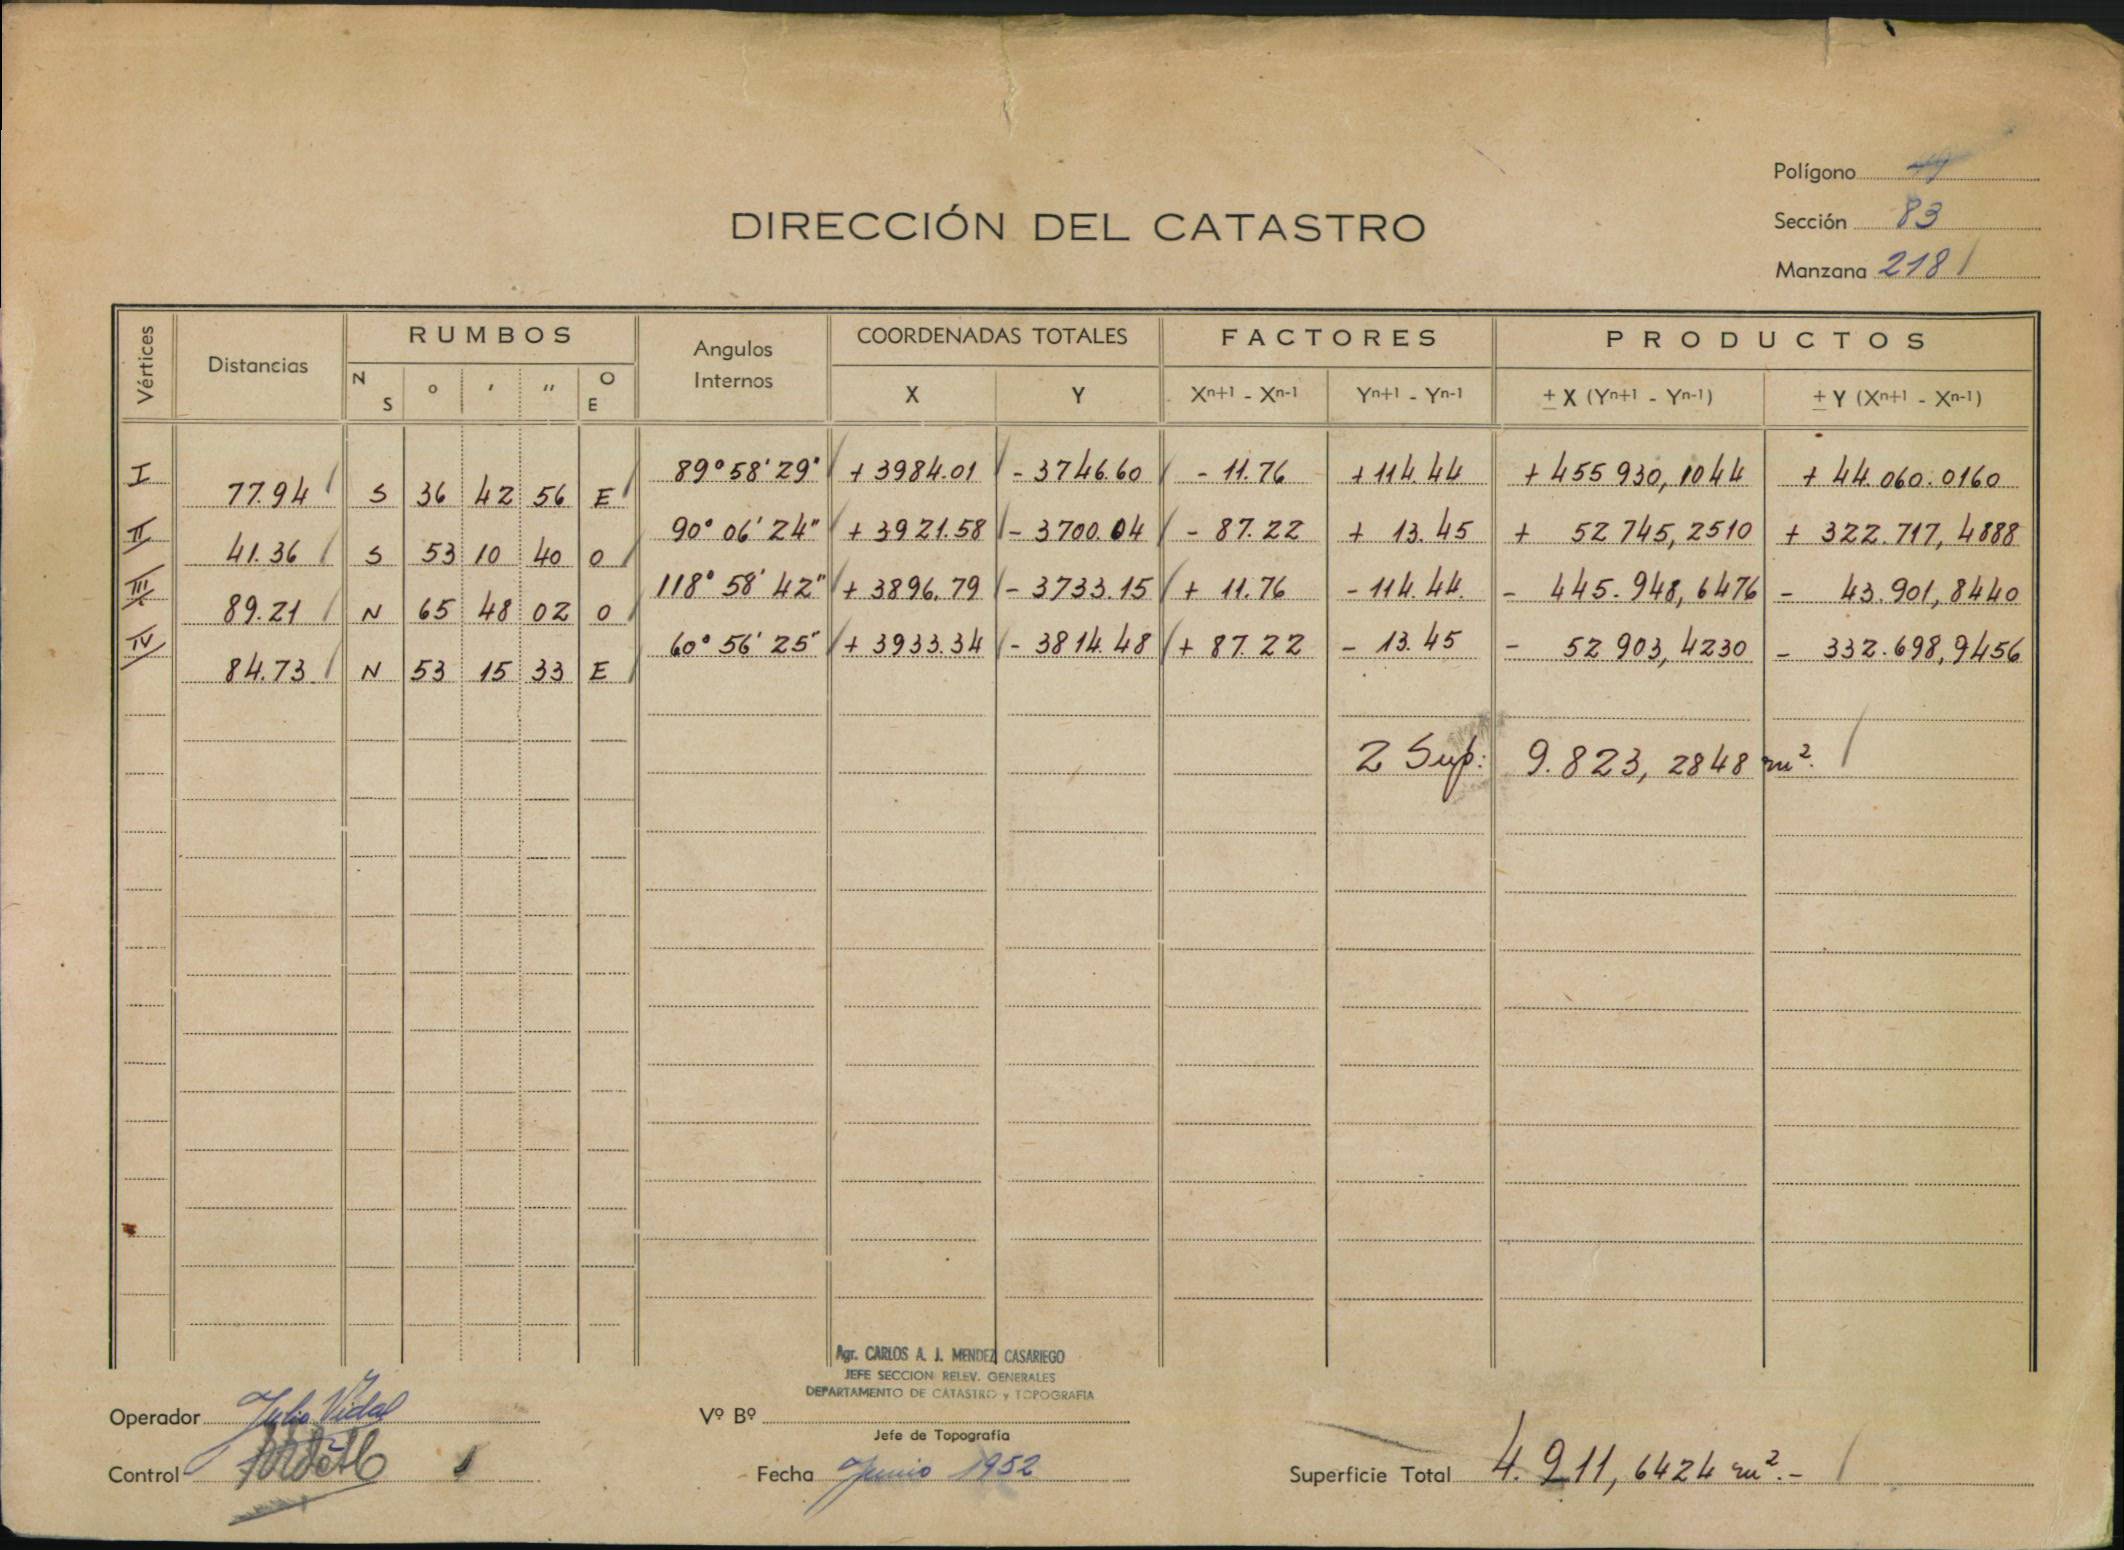 Polígono 49
DIRECCIÓN DEL CATASTRO
Sección 83
Manzana 218
Vértices
Distancias
RUMBOS
N S ° ' " O E
Angulos Internos
COORDENADAS TOTALES
X Y
FACTORES
Xn+1 - Xn-1 Yn+1 - Yn-1
PRODUCTOS
± X (Yn+1 - Yn-1) ± Y (Xn+1 - Xn-1)
I 89° 58' 29" + 3984.01 - 3746.60 - 11.76 + 114.44 + 455 930, 1044 + 44.060.0160
77.94 S 36 42 56 E
II 90° 06' 24" + 3921.58 - 3700.04 - 87.22 + 13.45 + 52 745, 2510 + 322.717, 4888
41.36 S 53 10 40 O
III 118° 58' 42" + 3896.79 - 3733.15 + 11.76 - 114.44. - 445.948, 6476 - 43.901, 8440
89.21 N 65 48 02 O
IV 60° 56' 25" + 3933.34 - 3814.48 + 87.22 - 13.45 - 52 903, 4230 - 332.698, 9456
84.73 N 53 15 33 E
2 Sup: 9.823, 2848 m².
Agr. CARLOS A. J. MENDEZ CASARIEGO
JEFE SECCION RELEV. GENERALES
DEPARTAMENTO DE CATASTRO y TOPOGRAFIA
Operador Julio Vidal
Vº Bº
Jefe de Topografía
Control
Fecha Junio 1952
Superficie Total 4.911, 6424 m².-